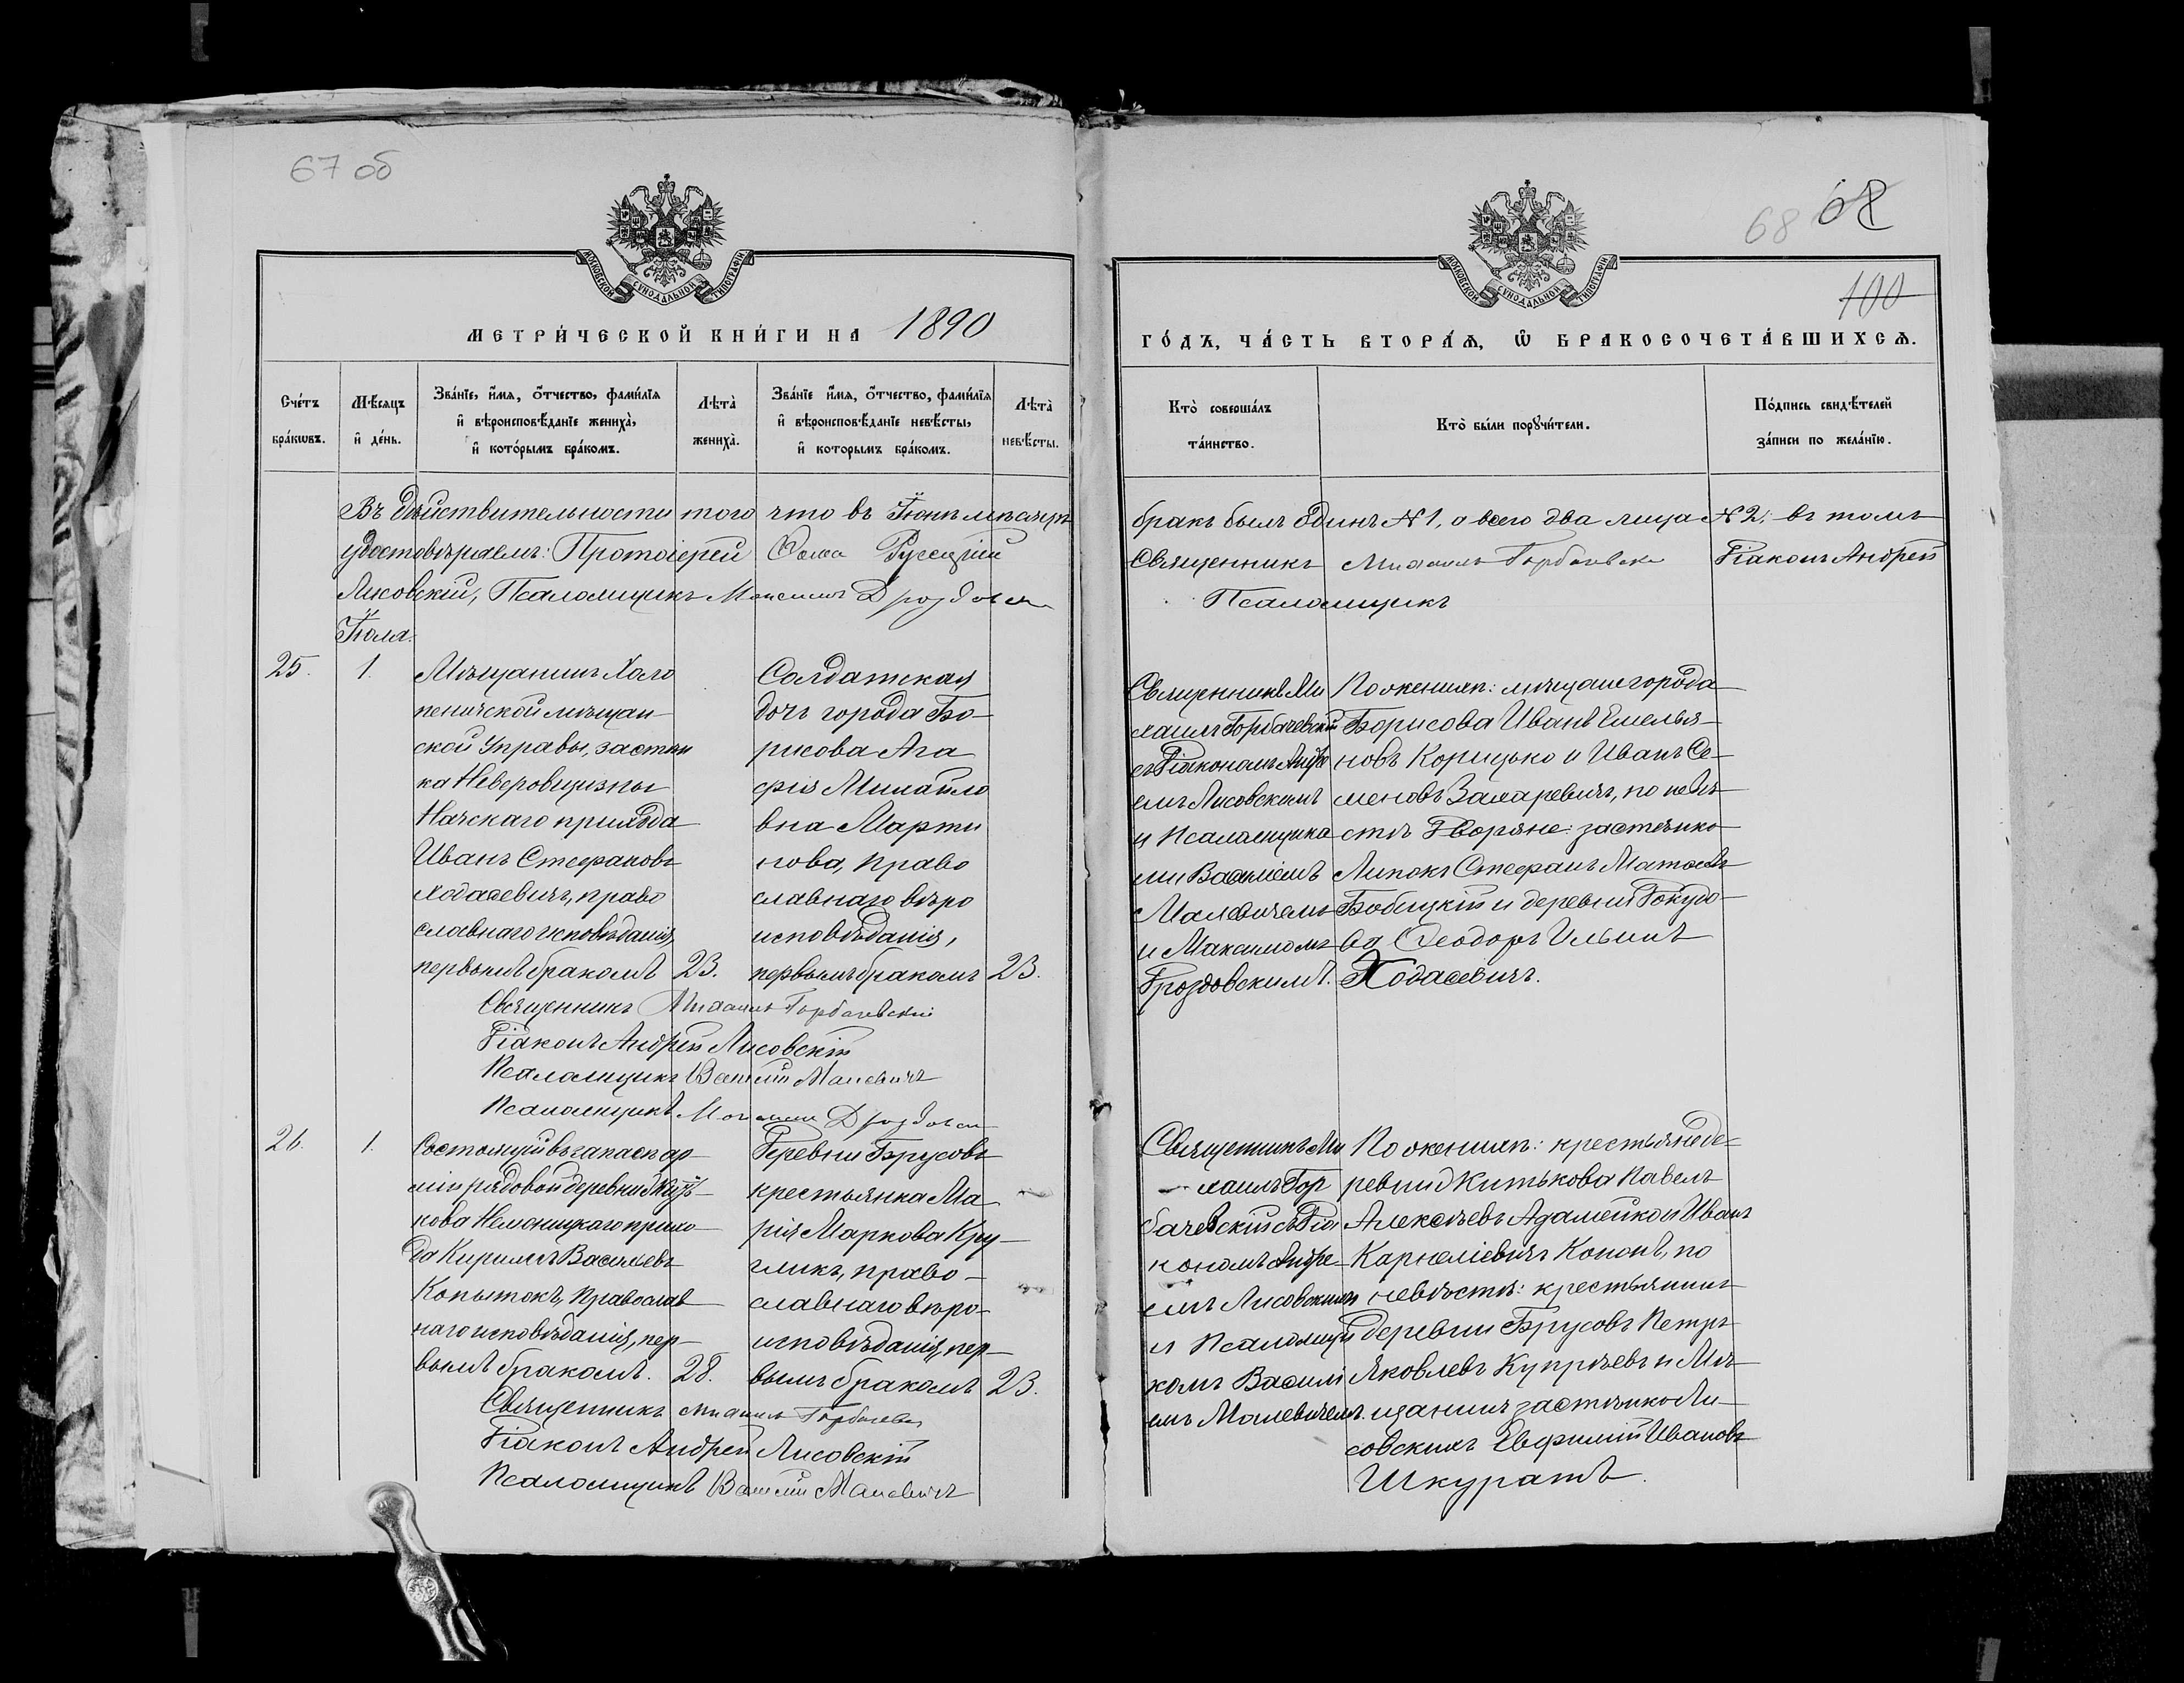 67 об
68
68
100
МОСКОВСКОЙ СѴНОДАЛЬНОЙ ТИПОГРАФІИ
МОСКОВСКОЙ СѴНОДАЛЬНОЙ ТИПОГРАФІИ
МЕТРИ́ЧЕСКОЙ КНИ́ГИ НА 1890
ГО́ДЪ, ЧА́СТЬ ВТОРА́Ѧ, Ѡ҆ БРАКОСОЧЕТА́ВШИХСѦ.
Сче́тъ бра́кѡвъ.
Мѣ́сяцъ и҆ де́нь.
Зва́нїе, и҆́мѧ, ѻ҆́тчество, фами́лїѧ
и҆ вѣроисповѣ́данїе жениха̀,
и҆ кото́рымъ бра́комъ.
Лѣ́та̀ жениха̀.
Зва́нїе, и҆́мѧ, ѻ҆́тчество, фами́лїѧ
и҆ вѣроисповѣ́данїе невѣ́сты,
и҆ кото́рымъ бра́комъ.
Лѣ́та̀ невѣ́сты.
Кто̀ соверша́лъ та́инство.
Кто̀ бы́ли порꙋчи́тели.
По́дпись свидѣ́телей за́писи по жела́нїю.
Въ дѣйствительности того что въ Іюнѣ мѣсяцѣ
бракъ былъ одинъ № 1, а всего два лица № 2, въ томъ
удостовѣряемъ: Протоіерей Ѳома Русецкій
Священникъ Михаилъ Горбачевскі Діаконъ Андрей
Лисовскій, Псаломщикъ Максимъ Дроздовскі
Псаломщикъ
Іюля.
25. 1.
Мѣщанинъ Холо
пеничской мѣщан
ской Управы, застѣн
ка Неверовщизны
Начскаго прихода
Иванъ Стефановъ
Ходасевичъ, право
славнаго исповѣданія,
первымъ бракомъ 23.
Солдатская
дочь города Бо-
рисова Ага
фія Михайло
вна Марти
нова, право
славнаго вѣро
исповѣданія,
первымъ бракомъ 23.
Священникъ Ми
хаилъ Горбачевскій
съ Діакономъ Андре
емъ Лисовскимъ
и Псаломщика
ми Василіемъ
Малевичемъ
и Максимомъ
Дроздовскимъ.
По женихѣ: мѣщане города
Борисова Иванъ Емелья-
новъ Корицько и Иванъ Се-
меновъ Захаревичъ, по невѣ
стѣ Дворяне: застѣнко
Липокъ Стефанъ Матѳеевъ
Бобицкій и деревни Докудо-
ва Ѳеодоръ Ильинъ
Ходасевичъ.
Священникъ Михаилъ Горбачевскій
Діаконъ Андрей Лисовскій
Псаломщикъ Василій Малевичъ
Псаломщикъ Максимъ Дроздовскі
26. 1.
Состоящій въ запасѣ ар
міи рядовой деревни Жить-
кова Неманицкаго прихо
да Кириллъ Васильевъ
Копытокъ, православ
наго исповѣданія, пер-
вымъ бракомъ. 28.
Деревни Брусовъ
крестьянка Ма
рія Маркова Кру-
гликъ, право-
славнаго вѣро-
исповѣданія, пер-
вымъ бракомъ 23.
Священникъ Ми
хаилъ Гор
бачевскій съ Діа
кономъ Андре-
емъ Лисовскимъ
и Псаломщи
комъ Васили
емъ Малевичемъ.
По женихѣ: крестьяне де-
ревни Житькова Павелъ
Алексѣевъ Адамейко и Иванъ
Карнеліевичъ Кононъ, по
невѣстѣ: крестьянинъ
деревни Брусовъ Петръ
Яковлевъ Купрѣевъ и Мѣ-
щанинъ застѣнко Ли-
совскихъ Евфимій Ивановъ
Шкуратъ.
Священникъ Михаилъ Горбачевскі
Діаконъ Андрей Лисовскій
Псаломщикъ Василій Малевичъ